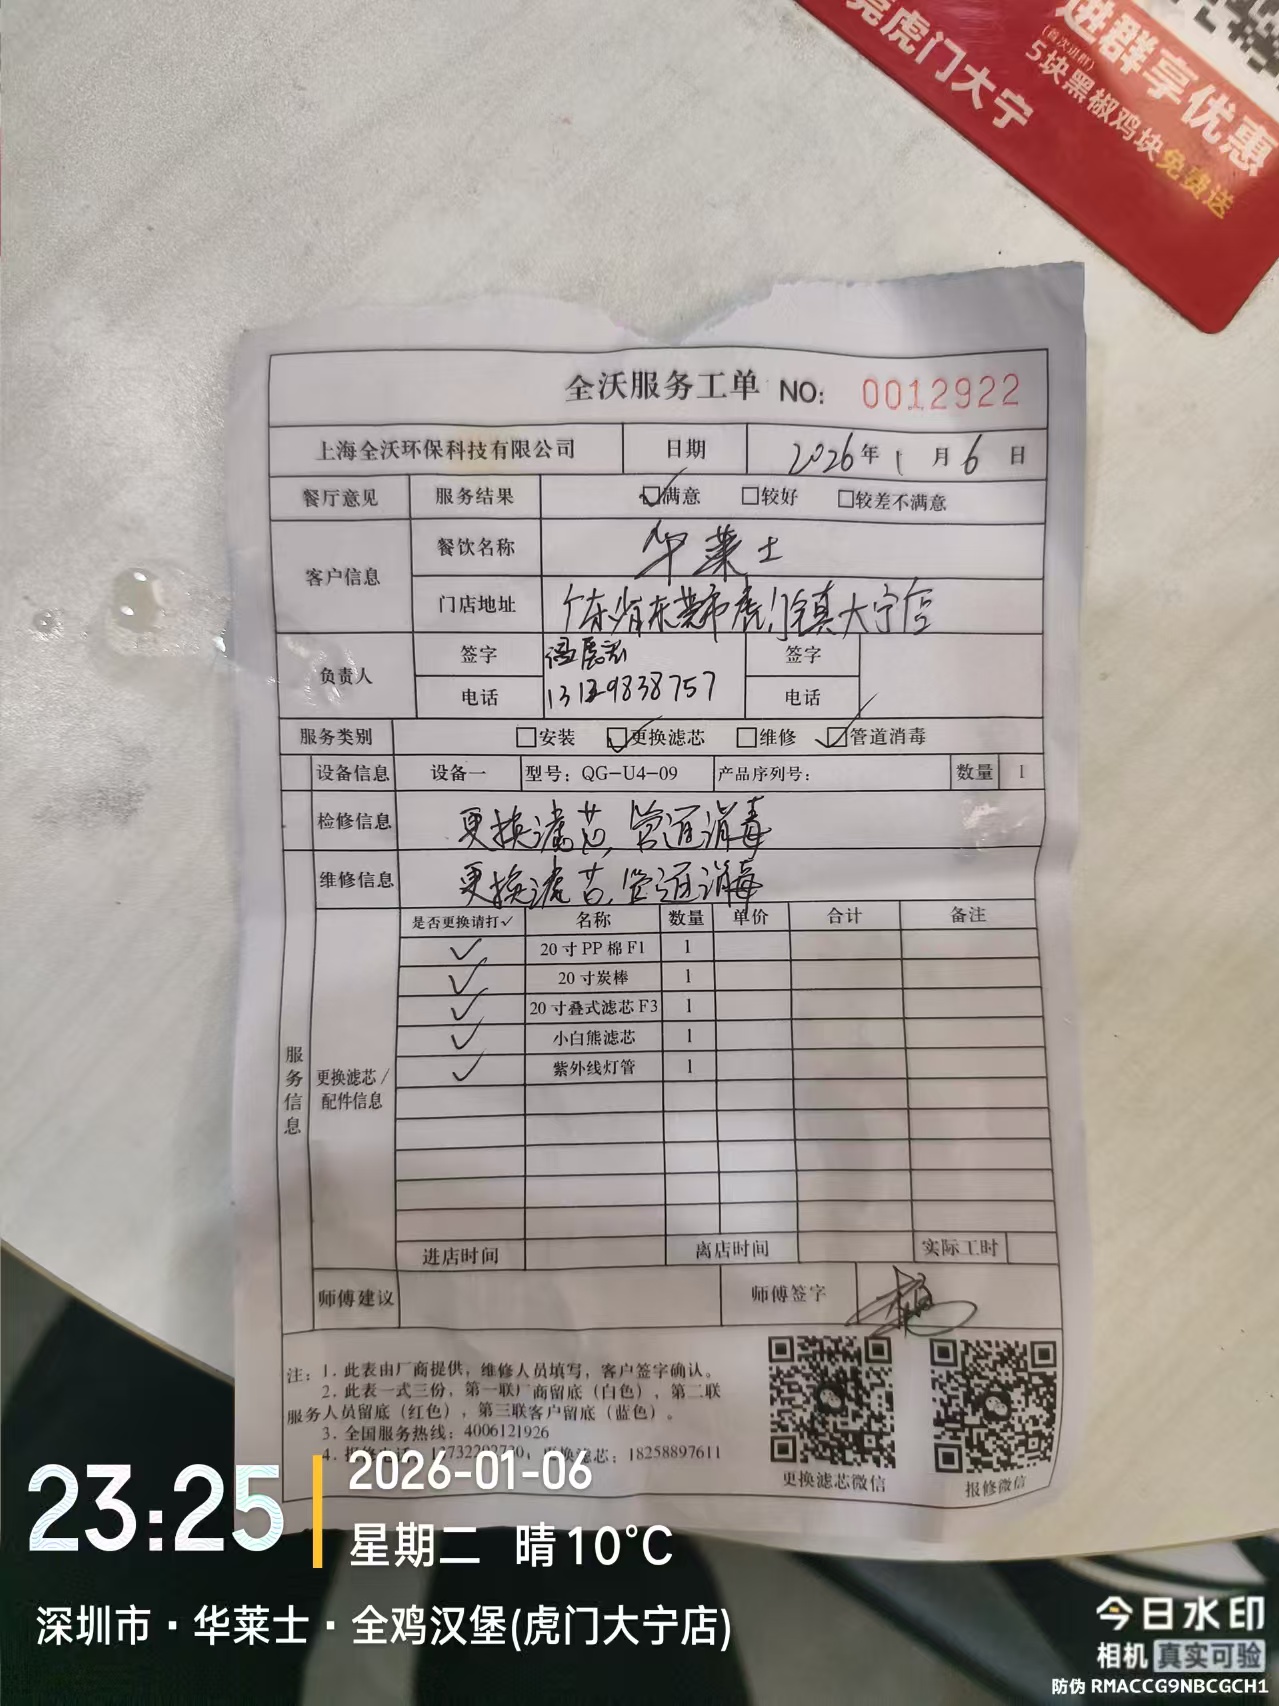 莞虎门大宁
进群享优惠
(首次进群)
5块黑椒鸡块免费送
全沃服务工单 NO: 0012922
上海全沃环保科技有限公司 日期 2026年1月6日
餐厅意见 服务结果 ☑满意 □较好 □较差不满意
客户信息 餐饮名称 华莱士
门店地址 广东省东莞市虎门镇大宁店
负责人 签字 签字
电话 电话
服务类别 □安装 ☑更换滤芯 □维修 ☑管道消毒
设备信息 设备一 型号：QG-U4-09 产品序列号： 数量 1
检修信息 更换滤芯,管道消毒
维修信息 更换滤芯,管道消毒
服务信息 更换滤芯/配件信息
是否更换请打✓ 名称 数量 单价 合计 备注
✓ 20寸PP棉F1 1
✓ 20寸炭棒 1
✓ 20寸叠式滤芯F3 1
✓ 小白熊滤芯 1
✓ 紫外线灯管 1
进店时间 离店时间 实际工时
师傅建议 师傅签字
注：1. 此表由厂商提供，维修人员填写，客户签字确认。
2. 此表一式三份，第一联厂商留底（白色），第二联
服务人员留底（红色），第三联客户留底（蓝色）。
3. 全国服务热线：4006121926
4. 更换滤芯：18258897611
更换滤芯微信 报修微信
23:25
2026-01-06
星期二 晴10°C
深圳市·华莱士·全鸡汉堡(虎门大宁店)
今日水印
相机 真实可验
防伪 RMACCG9NBCGCH1